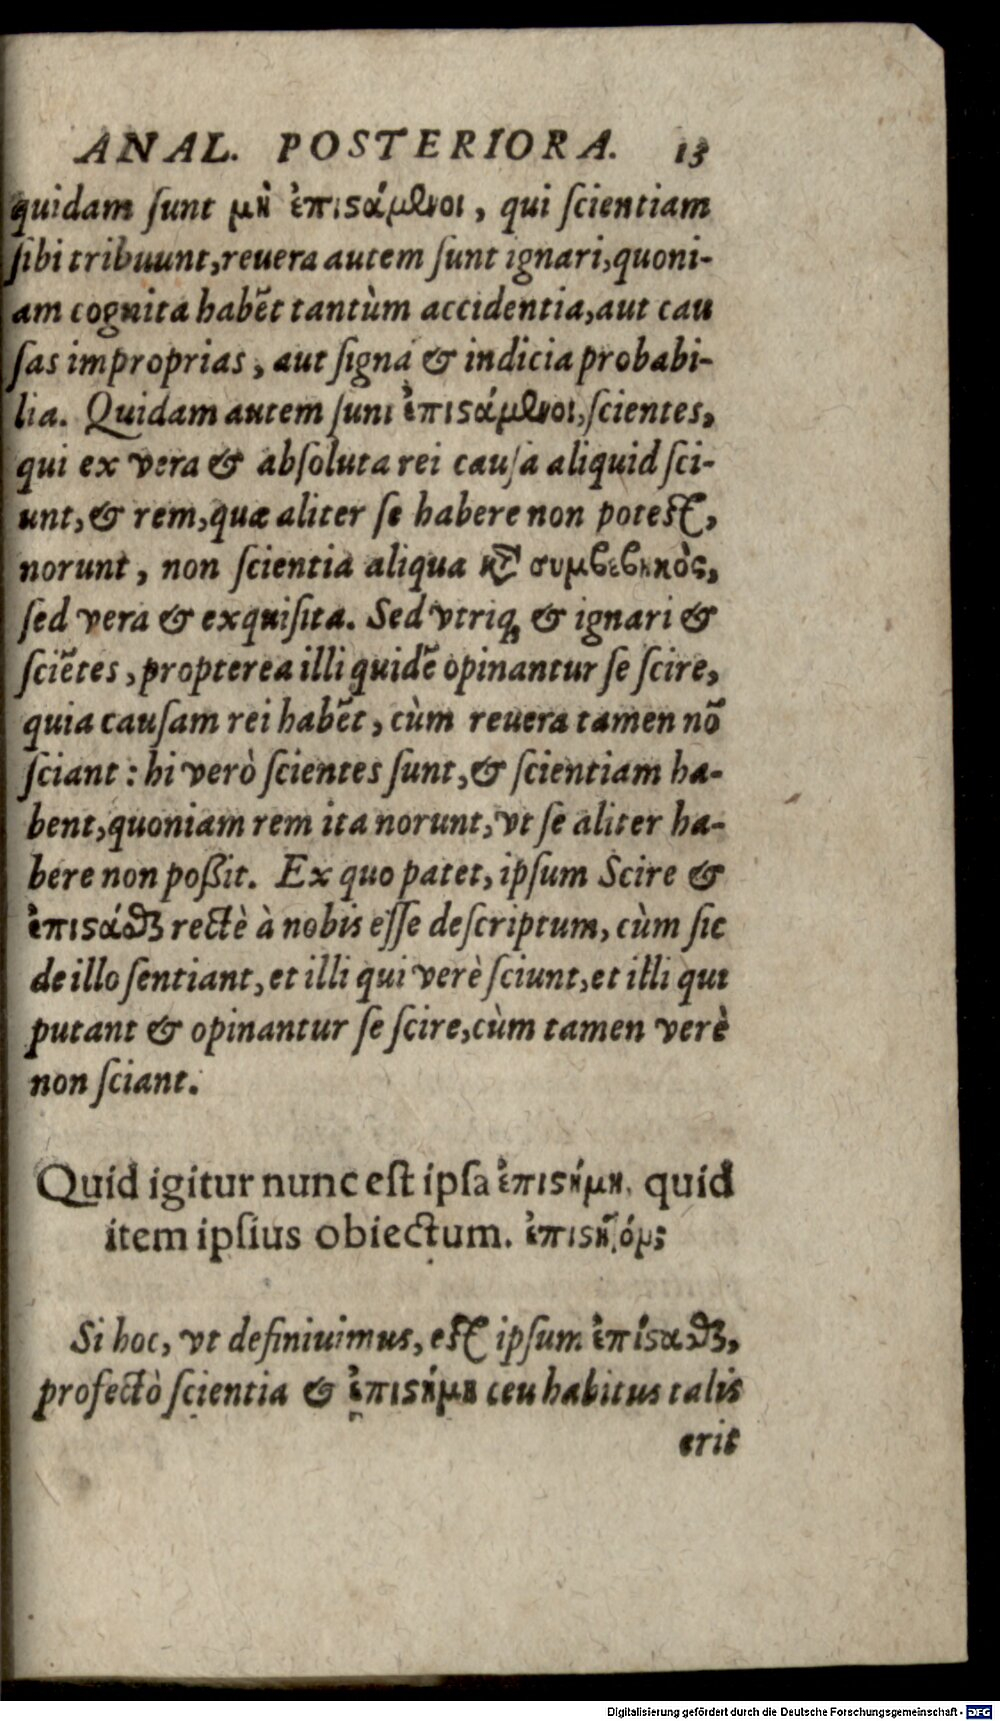 ANAL. POSTERIORA. 13
quidam ſunt μὴ ἐπιϛάμϖοι, qui ſcientiam
ſibi tribuunt, reuera autem ſunt ignari, quoni-
am cognita habēt tantùm accidentia, aut cau
ſas improprias, aut ſigna & indicia probabi-
lia. Quidam autem ſunt ἐπιϛάμενοι, ſcientes,
qui ex vera & abſoluta rei cauſa aliquid ſci-
unt, & rem, quæ aliter ſe habere non poteſt,
norunt, non ſcientia aliqua κτ̀ συμβεβηκὸς,
ſed vera & exquiſita. Sed vtriq; & ignari &
ſciētes, propterea illi quidē opinantur ſe ſcire,
quia cauſam rei habēt, cùm reuera tamen nō
ſciant: hi verò ſcientes ſunt, & ſcientiam ha-
bent, quoniam rem ita norunt, vt ſe aliter ha-
bere non poßit. Ex quo patet, ipſum Scire &
ἐπιϛάϑαι rectè à nobis eſſe deſcriptum, cùm ſic
de illo ſentiant, et illi qui verè ſciunt, et illi qui
putant & opinantur ſe ſcire, cùm tamen verè
non ſciant.
Quid igitur nunc eſt ipſa ἐπιϛήμη, quid
item ipſius obiectum. ἐπιϛητόμς
Si hoc, vt definiuimus, eſt ipſum ἐπίϛαϑαι,
profectò ſcientia & ἐπιϛήμη ceu habitus talis
erit
Digitalisierung gefördert durch die Deutsche Forschungsgemeinschaft - DFG